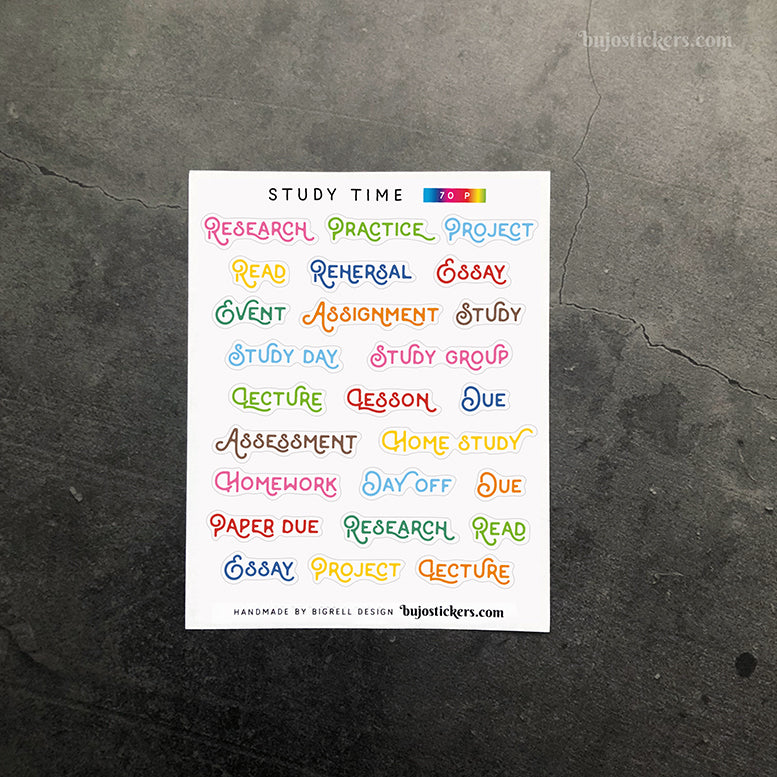 bujostickers.com
STUDY TIME 70 P
RESEARCH PRACTICE PROJECT
READ REHERSAL ESSAY
EVENT ASSIGNMENT STUDY
STUDY DAY STUDY GROUP
LECTURE LESSON DUE
ASSESSMENT HOME STUDY
HOMEWORK DAY OFF DUE
PAPER DUE RESEARCH READ
ESSAY PROJECT LECTURE
HANDMADE BY BIGRELL DESIGN bujostickers.com